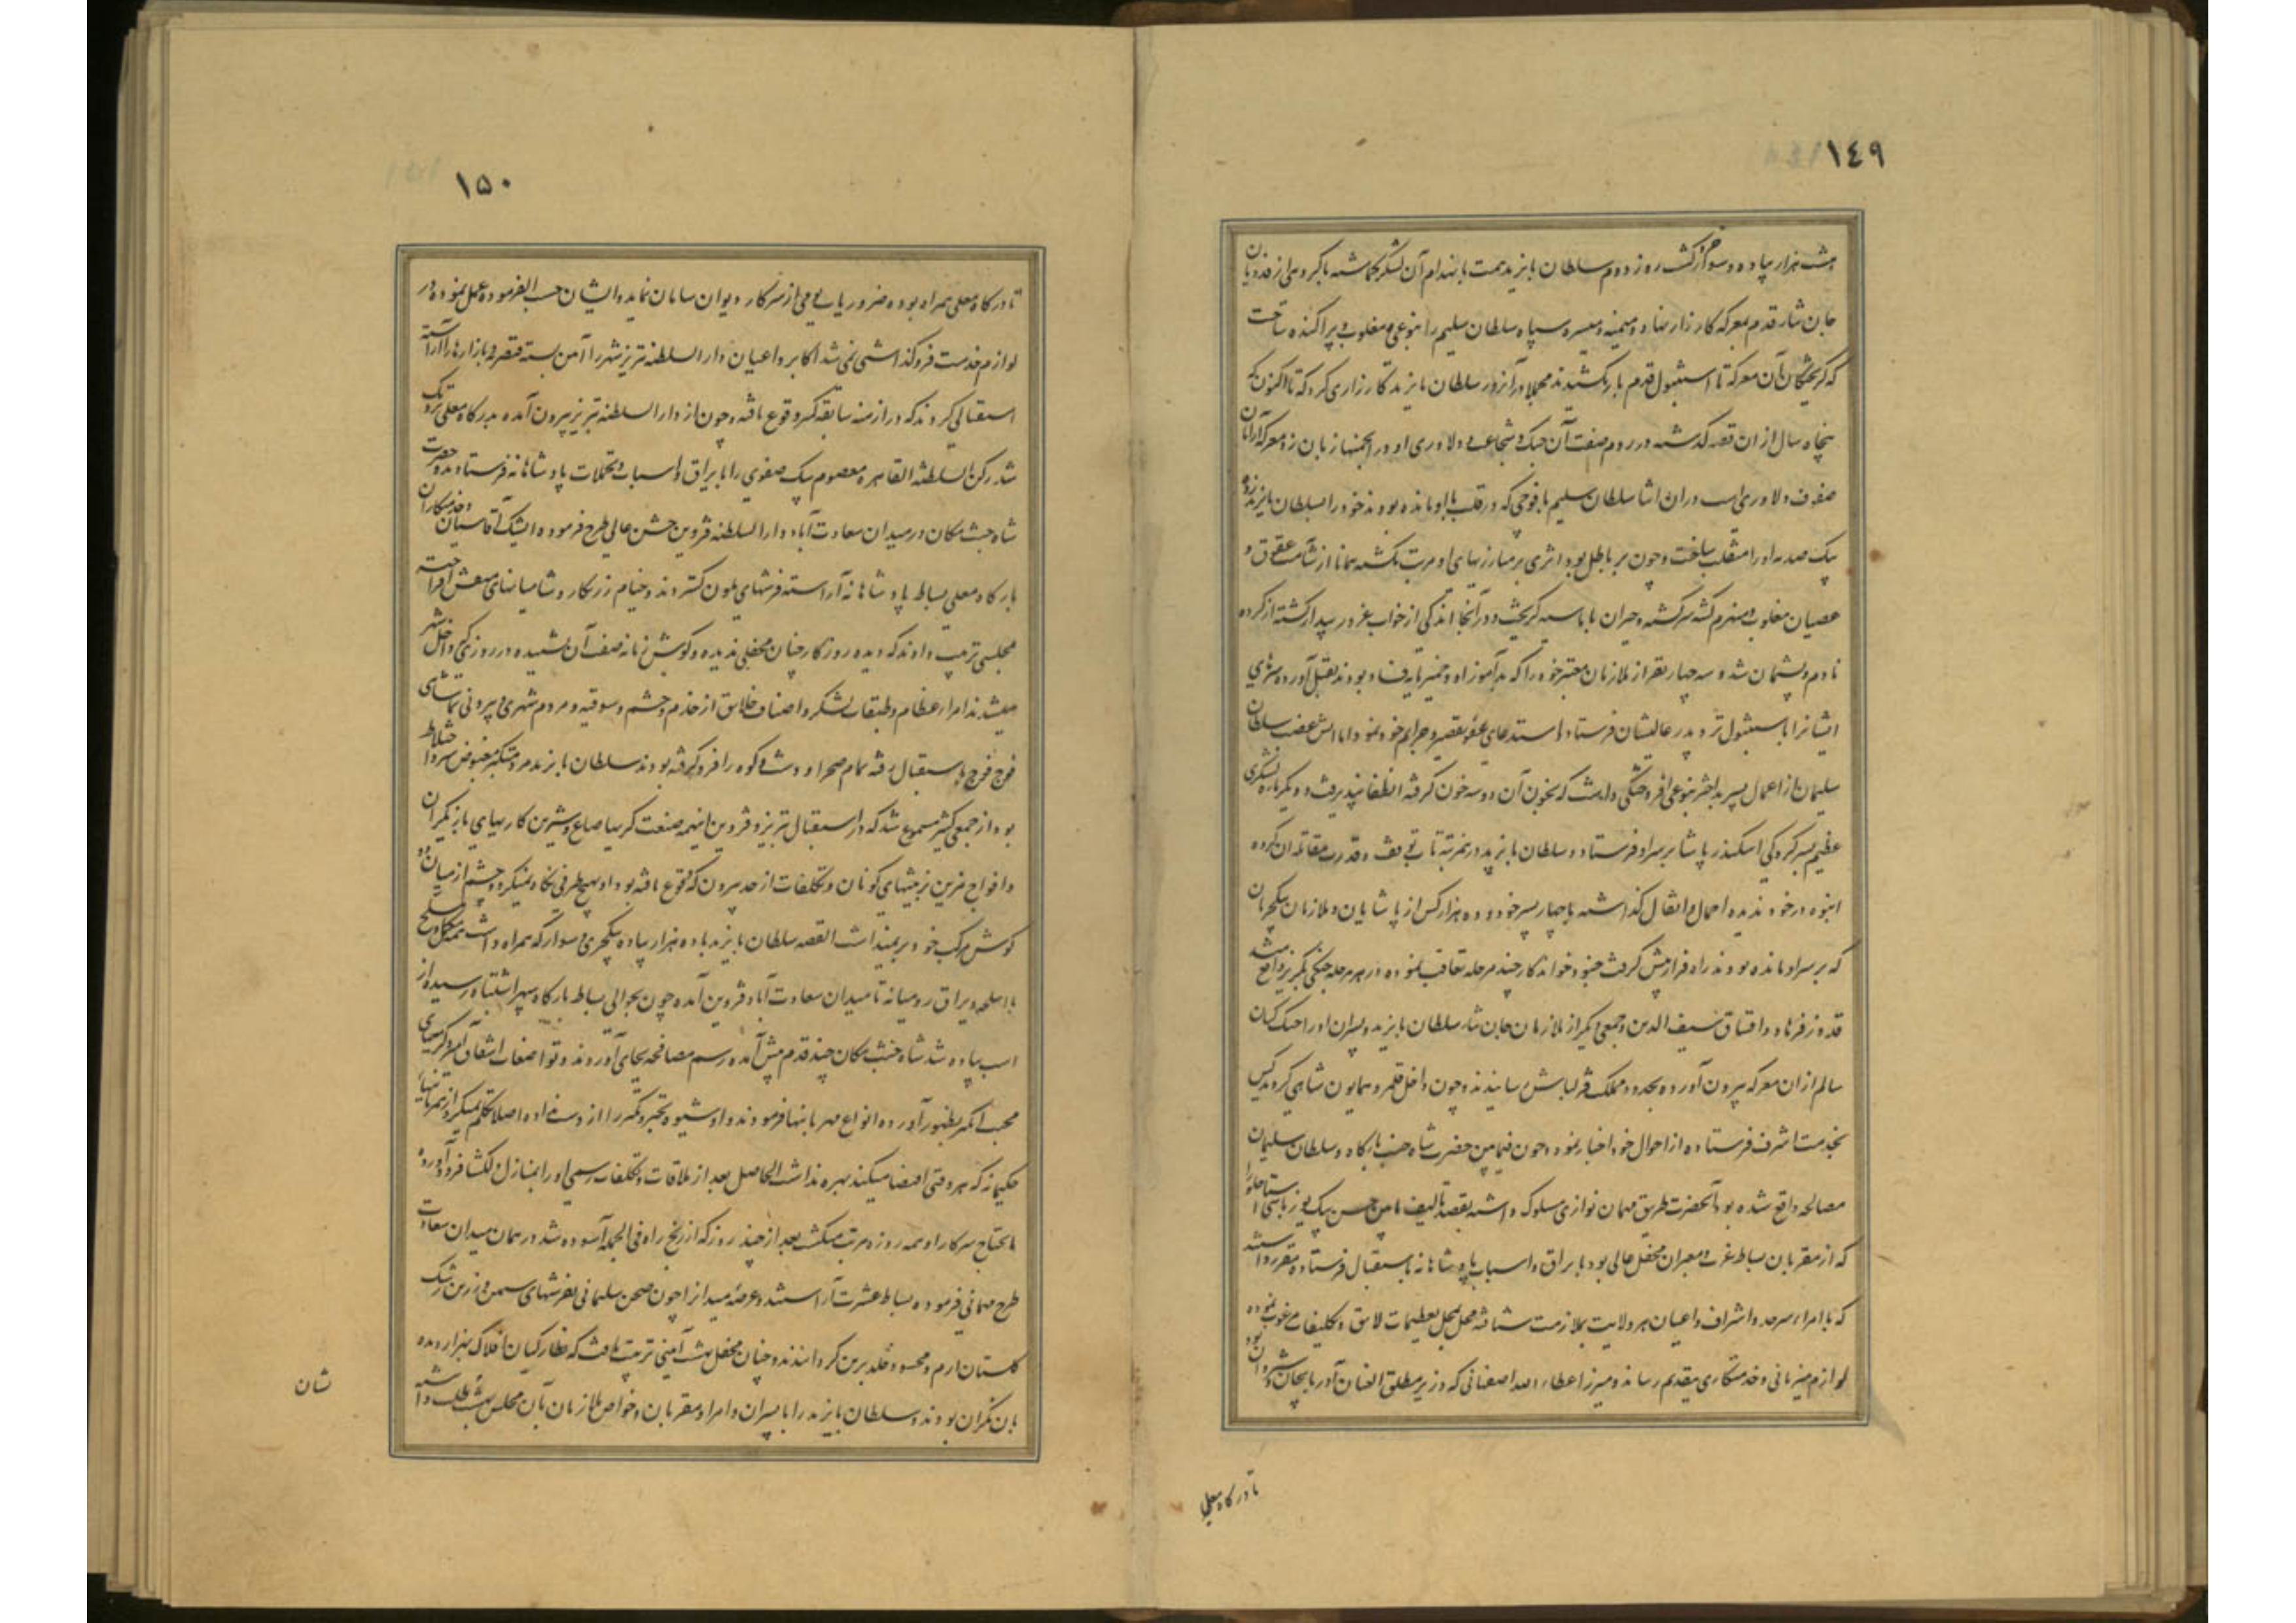 ١٤٩
هشت هزار پیاده و سوار کشت روز دوم سلطان بایزید همت بانهدام آن لشکر گماشته با گروهی از فدویان
جان نثار قدم بمعرکه کارزار نهاد و میمنه و میسره سپاه سلطان سلیم را بنوعی مغلوب و پراکنده ساخت
که گریختگان آن معرکه تا استنبول قدم باز نکشیدند مجملا در آنروز سلطان بایزید کارزاری کرد که تا اکنون که
پنجاه سال از ان قصه گذشته در روم صفت آن جنک و شجاعت و دلاوری او در انجمنها زبان زد معرکه آرایان
صفوف دلاوری است در ان اثنا سلطان سلیم با فوجی که در قلب با او مانده بودند خود را بسلطان بایزید زده
بیک صدمه او را منقلب ساخت و چون بر باطل بود اثری بر مبارزیهای او مرتب نکشته همانا از شآمت عقوق و
عصیان مغلوب و منهزم کشته سرکشته و حیران باماسیه گریخت و در آنجا اندکی از خواب غرور بیدار گشته از کرده
نادم و پشیمان شد و سه چهار نفر از ملازمان معتبر خود را که بدآموز او و خمیرمایه فساد بودند بقتل آورده سرهای
ایشانرا باستنبول نزد پدر عالیشان فرستاد و استدعای عفو تقصیر و جرایم خود نمود اما آتش غضب سلطان
سلیمان از اعمال پسر بداختر بنوعی افروختگی داشت که بخون آن دو سه خون گرفته انطفا نپذیرفت و دیگر باره لشکری
عظیم بسرکردگی اسکندر پاشا بر سر او فرستاد و سلطان بایزید در نمرتبه تاب توقف و قدرت مقاتله ان گروه
انبوه در خود ندیده احمال و اثقال گذاشته با چهار پسر خود و ده هزار کس از پاشایان و ملازمان ینکچریان
که بر سر او مانده بودند راه فرار پیش گرفت جنود خواندگار چند مرحله تعاقب نموده در هر مرحله جنگی بگریز واقع میشد
قدوز فرهاد و اقساق سیف الدین و جمعی دیگر از ملازمان جان نثار سلطان بایزید و پسران او را جنک کنان
سالم از ان معرکه بیرون آورده بحدود مملکت قزلباش رسانیدند و چون داخل قلمرو همایون شاهی گردید کس
بخدمت اشرف فرستاده از احوال خود اخبار نمود و چون فیمابین حضرت شاه جنت بارگاه و سلطان سلیمان
مصالحه واقع شده بود آنحضرت طریق مهمان نوازی مسلوک داشته بقصد تالیف مابین حسن بیک یوزباشی استاجلو را
که از مقربان بساط عزت و معبران محفل عالی بود با یراق و اسباب پادشاهانه باستقبال فرستاده مقرر داشتند
که با امراء سرحد و اشراف و اعیان هر ولایت بملازمت شتافته محل بمحل تعظیمات لایق و تکلیفات مرغوب نموده
لوازم میزبانی و خدمتکاری بتقدیم رساند و میرزا عطاء الله اصفهانی که وزیر مطلق العنان آذربایجان و شیروان بود
تا درگاه معلی
١٥٠
تا درگاه معلی همراه بوده ضروریات یومی از سرکار دیوان سامان نماید و ایشان حسب الفرموده عمل نموده در
لوازم خدمت فروگذاشتی نمی شد اکابر و اعیان دار السلطنه تبریز شهر را آئین بسته قیصریه و بازارها را آراسته
استقبالی کردند که در ازمنه سابقه کم وقوع یافته و چون از دار السلطنه تبریز بیرون آمده بدرگاه معلی نزدیک
شد رکن السلطنه القاهره معصوم بیک صفوی را با یراق و اسباب و تجملات پادشاهانه فرستادند و حضرت
شاه جنت مکان در میدان سعادت آباد دار السلطنه قزوین جشن عالی طرح فرموده ایشیک آقاسیان و خدمتکاران
بارگاه معلی بساط پادشاهانه آراسته فرشهای ملون گستردند و خیام زرنگار و شامیانهای منقش افراخته
مجلسی ترتیب دادند که دیده روزگار چنان محفلی ندیده و گوش زمانه صفت آن نشنیده در روزی که داخل شهر
میشدند امراء عظام و طبقات لشکر و اصناف خلایق از خدم و حشم و سوقیه و مردم شهری و بیرونی تماشای
فوج فوج باستقبال رفته تمام صحرا و دشت و کوه را فرو گرفته بودند سلطان بایزید مرد متکبر مغبوض سرد اختلاط
بود از جمعی کثیر مسموع شد که در استقبال تبریز و قزوین اینهمه صنعت گریها صناع و شیرین کاریهای بازیگران
و افواج مزین بزینتهای گوناگون و تکلفات از حد بیرون که وقوع یافته بود او بهیچ طرف نگاه نمیکرد و چشم از میان دو
گوش مرکب خود بر نمیداشت القصه سلطان بایزید با ده هزار پیاده ینکچری و سوار که همراه داشت مکمل و مسلح
با اسلحه و یراق رومیانه تا میدان سعادت آباد قزوین آمده چون بحوالی بساط بارگاه سپهر اشتباه رسیده از
اسب پیاده شد شاه جنت مکان چند قدم پیش آمده رسم مصافحه بجای آوردند و تواضعات اشفاق آمیز و گرمیهای
محبت انگیز بظهور آورده انواع مهربانیها فرمودند و او شیوه تجبر و تکبر را از دست نداده اصلا تکلم نمیکرد و از همزبانیهای
حکیمانه که هر وقتی اقتضا میکند بهره نداشت الحاصل بعد از ملاقات و تکلفات رسمی او را بمنازل دلکشا فرود آورده
مایحتاج سرکار او همه روزه مرتب میگشت بعد از چند روز که از رنج راه فی الجمله آسوده شد در همان میدان سعادت
طرح مهمانی فرموده بساط عشرت آراستند و عرصه میدانرا چون صحن سلیمانی بفرشهای سیمین و زرین رشک
گلستان ارم و محسود خلد برین گردانیدند و چنان محفل بهشت آیینی ترتیب یافت که نظارگیان افلاک بهزار دیده
بان نگران بودند و سلطان بایزید را با پسران و امرا و مقربان و خواص ملازمان بآن مجلس بهشت طلب داشته
شان